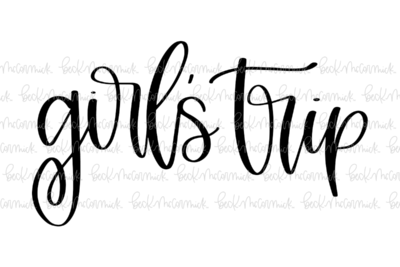 girl's trip